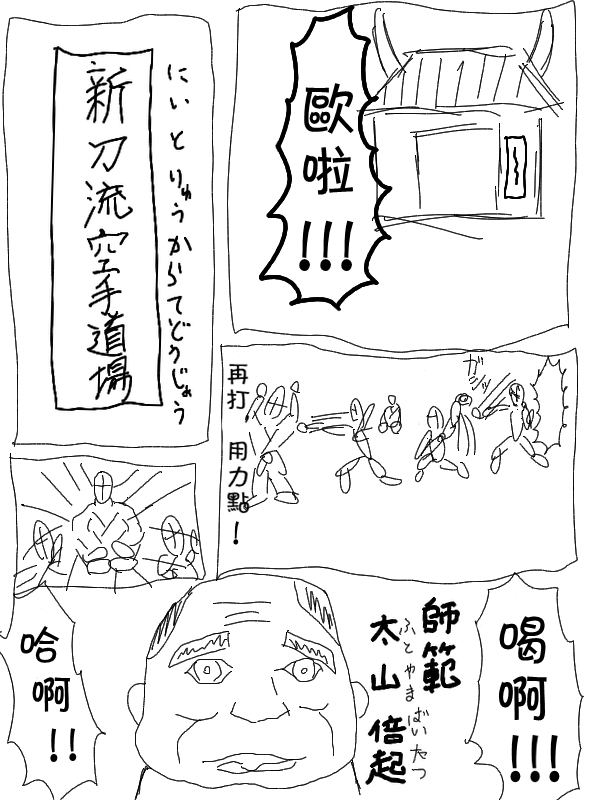 歐啦!!!
新刀流空手道場
にいとりゅうからてどうじょう
ガシッ
再打 用力點!
喝啊!!!
師範
太山 倍起
ふとやま ばいたつ
哈啊!!